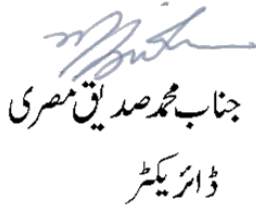 جناب محمد صدیق مصری
ڈائریکٹر